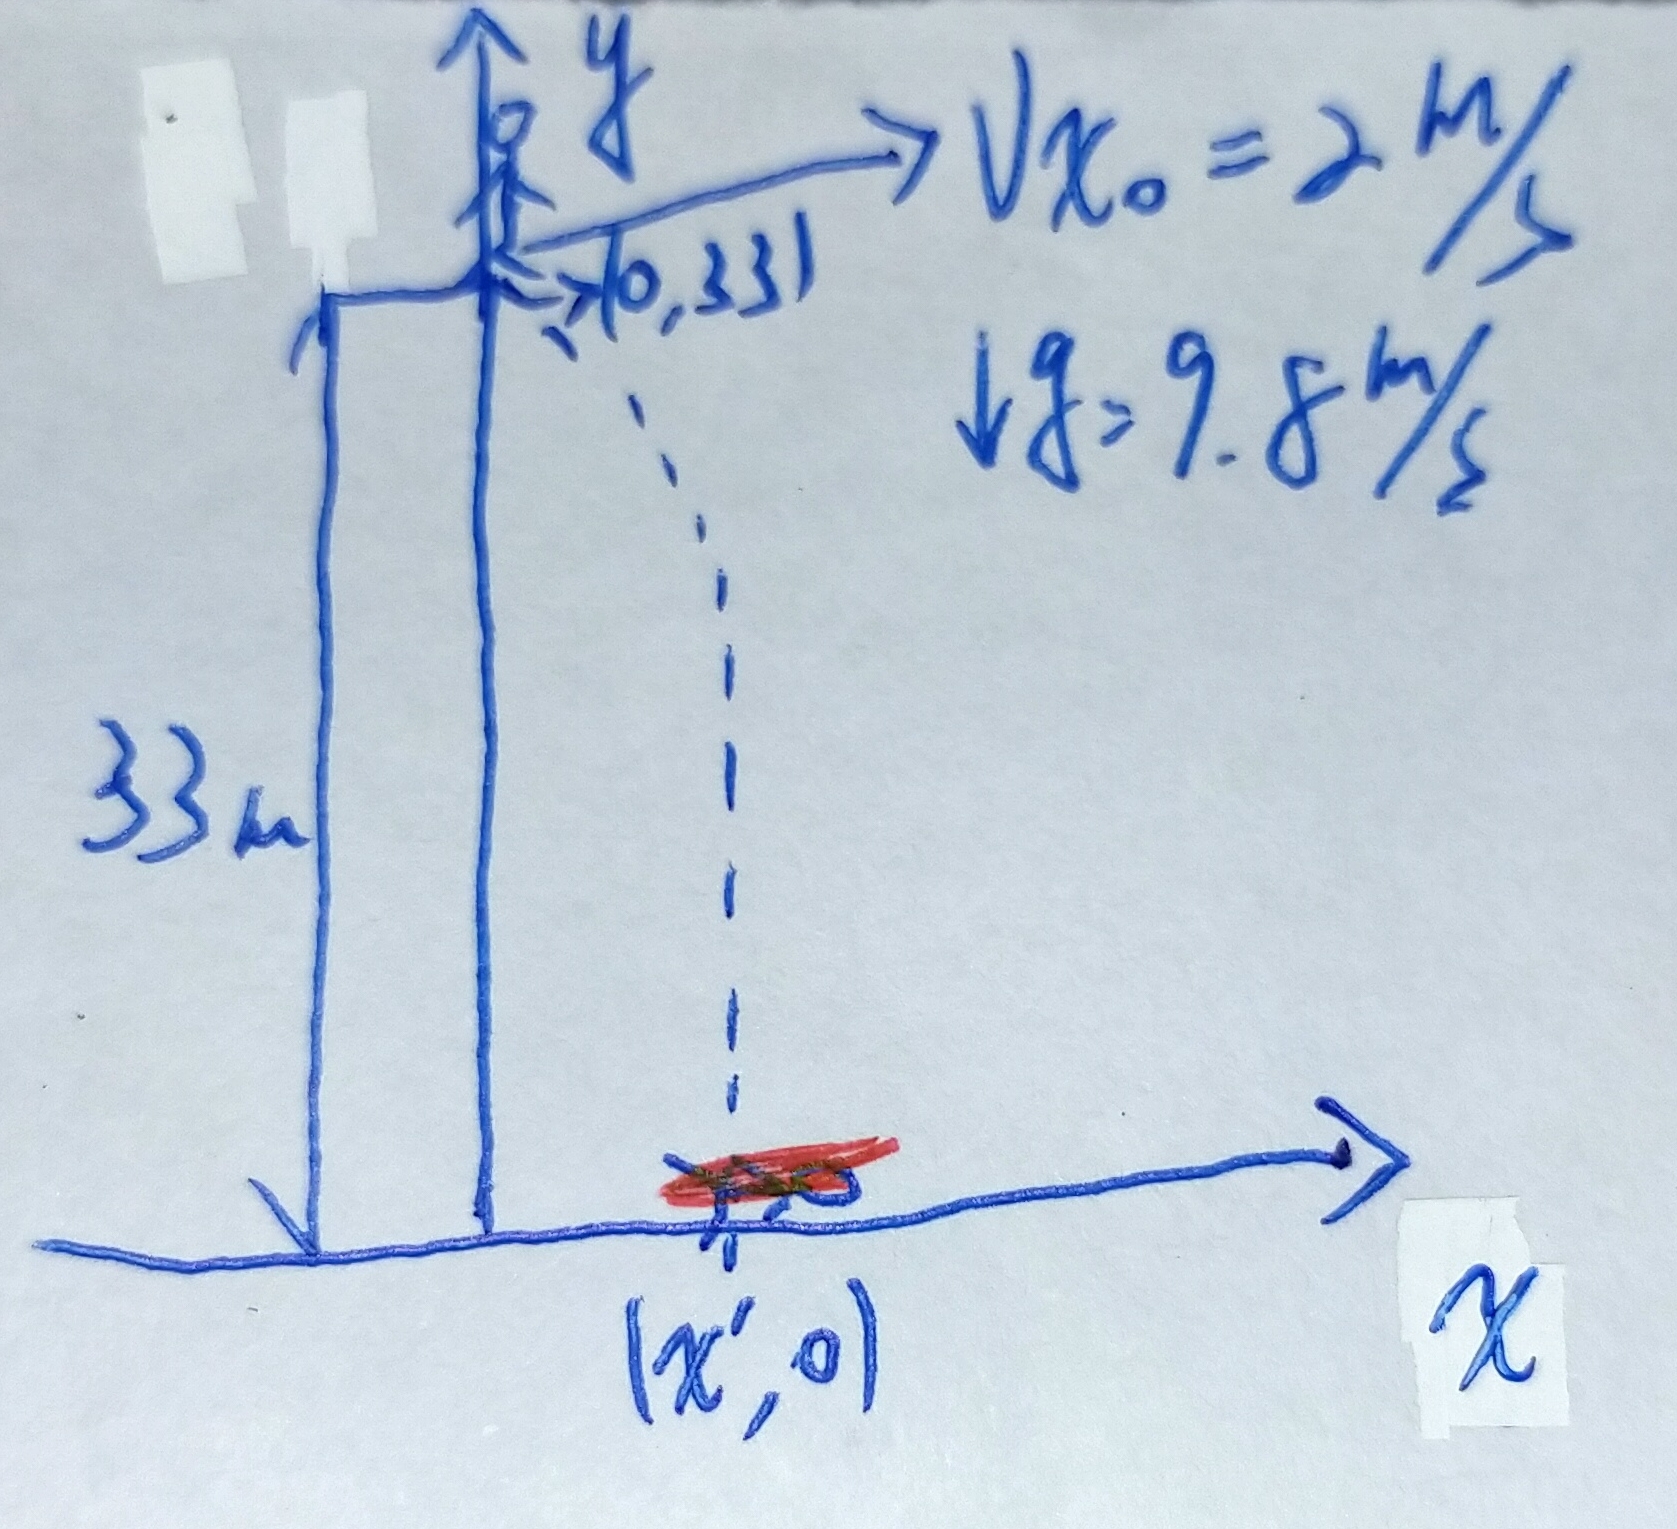 y
Vx₀ = 2 m/s
(0,33)
↓g = 9.8 m/s
33m
(x′,0)
x